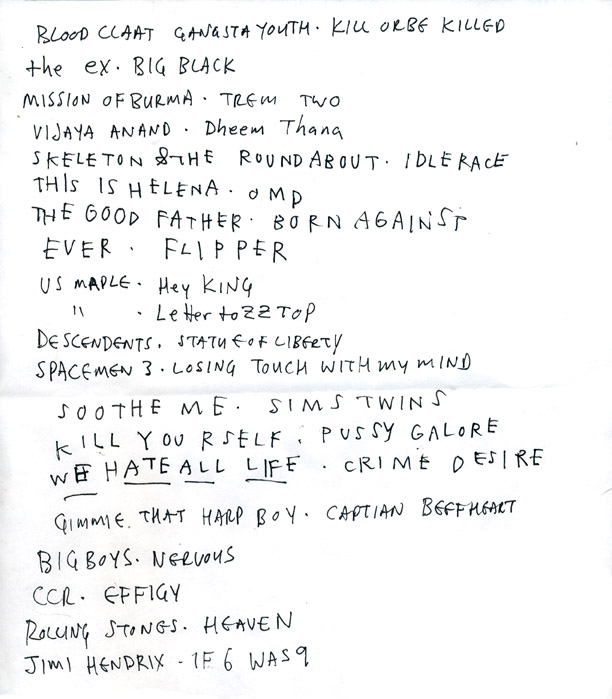 BLOOD CLAAT GANGSTA YOUTH. KILL OR BE KILLED
the ex. BIG BLACK
MISSION OF BURMA. TREM TWO
VIJAYA ANAND. Dheem Thana
SKELETON & THE ROUNDABOUT. IDLE RACE
THIS IS HELENA. OMD
THE GOOD FATHER. BORN AGAINST
EVER. FLIPPER
US MAPLE. Hey KING
" . Letter to ZZ TOP
DESCENDENTS. STATUE OF LIBERTY
SPACEMEN 3. LOSING TOUCH WITH MY MIND
SOOTHE ME. SIMS TWINS
KILL YOURSELF. PUSSY GALORE
WE HATE ALL LIFE. CRIME DESIRE
GIMMIE THAT HARP BOY. CAPTIAN BEEFHEART
BIG BOYS. NERVOUS
CCR. EFFIGY
ROLLING STONES. HEAVEN
JIMI HENDRIX - IF 6 WAS 9